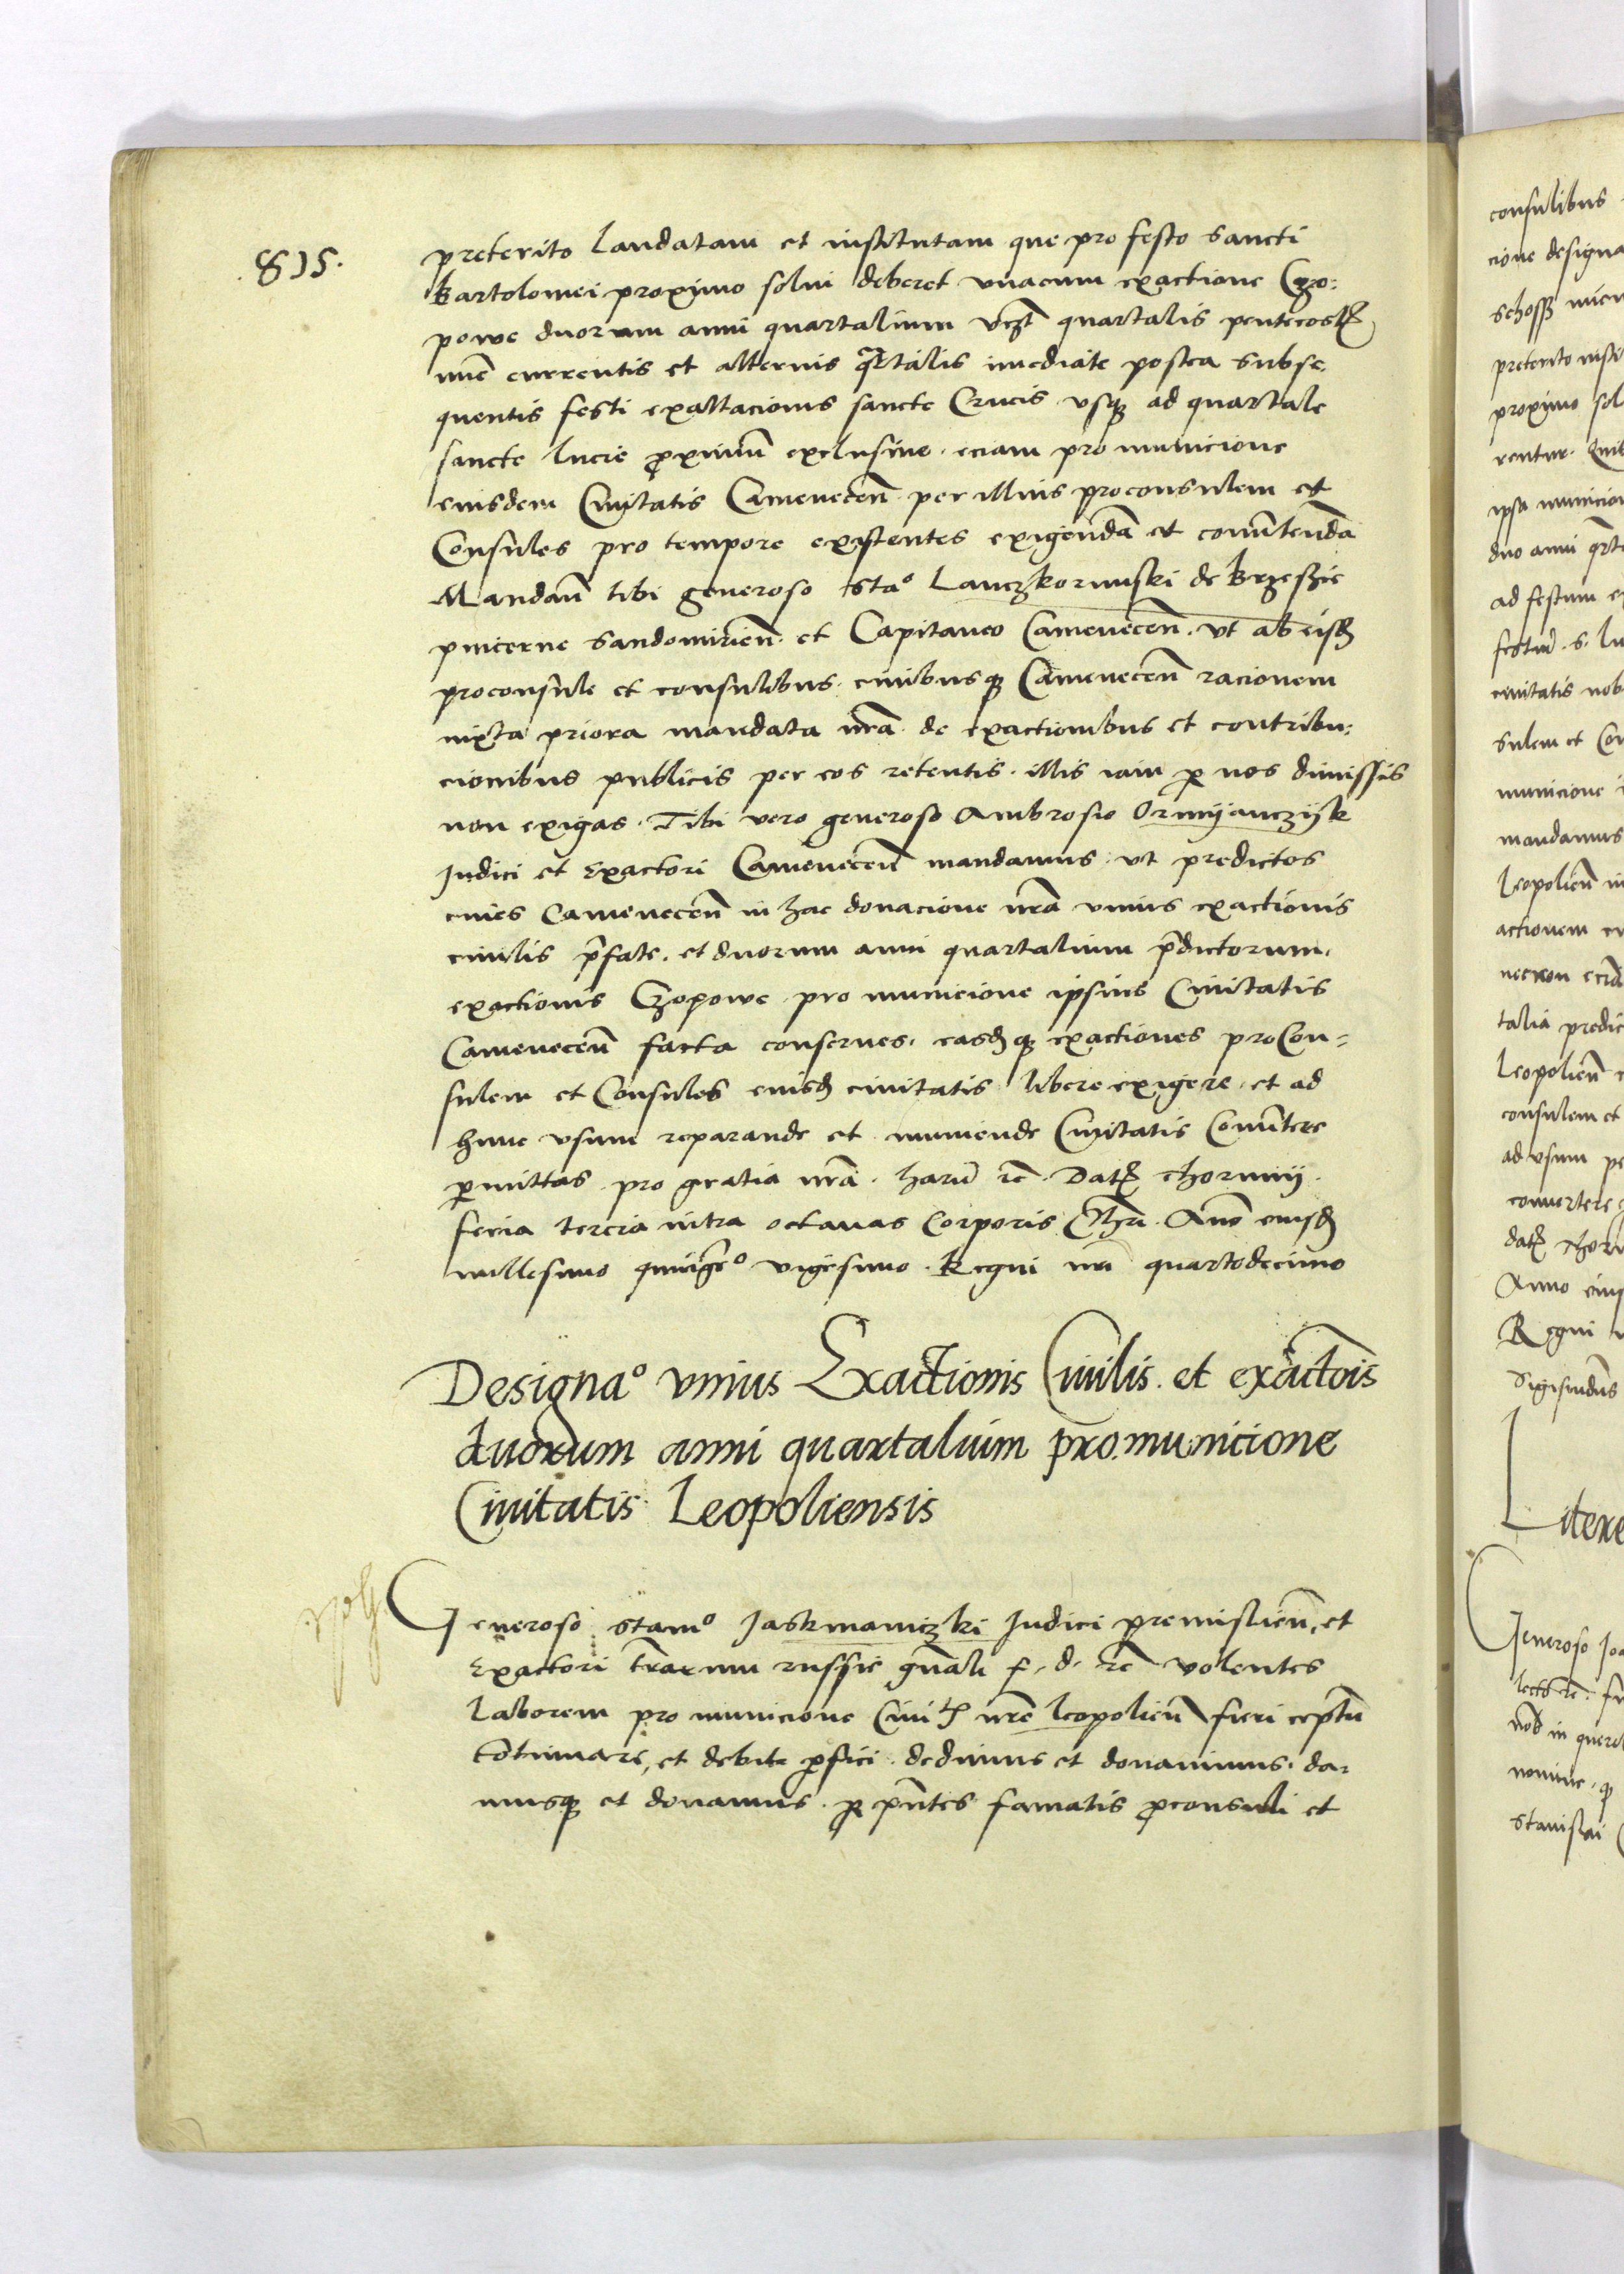 815.
preterito laudatam et institutam que pro festo sancti
Bartolomei proximo solui deberet vnacum exactione Czo:
powe duorum anni quartalium vczt quartalis pentecost
nunc currentis et alterius qrtalis imediate postea subse,
quentis festi exaltacionis sancte Crucis vsq ad quartale
sancte lucie proximum exclusiue. eciam pro municione
eiusdem Ciuitatis Camenecen. per illius proconsulem et
Consules pro tempore existentes exigenda et conuertenda
Mandam tibi generoso stao Lanczkorunski de Brzeszie
pincerne Sandomirien. et Capitaneo Camenecen. vt ab eisd
proconsule et consulibus. ciuibusq Camenecen racionem
iuxta priora mandata nra de exactionibus et contribu:
cionibus publicis per eos retentis. illis iam p nos dimissis
non exigas. Tibi vero generoso Ambrosio Ormijanczijk
Iudici et Exactori Camenecen mandamus. vt predictos
ciues Camenecen in hac donacione nra vnius exactionis
ciuilis pfate. et duorum anni quartalium pdictorum.
exactionis Czopowe. pro municione ipsius Ciuitatis
Camenecen facta conserues. easdq exactiones proCon=
sulem et Consules eiusd ciuitatis. libere exigere. et ad
hunc vsum reparande et muniende Ciuitatis Conuertere
pmittas. pro gratia nra. haru rc. Dat Thorunij.
feria tercia intra octauas Corporis Chri. Ano eiusd
millesimo quingeo vigesimo. Regni nri quartodecimo
Designao vnius Exactionis Ciuilis. et exactois
duorum anni quartalium pro municione
Ciuitatis Leopoliensis
Generoso stanio Jaskmaniczki Iudici premislien, et
Exactori trarum russie gnali f. d. rc volentes
laborem pro municione Ciuit nre leopolien fieri ceptu
cotinuare, et debite pfici. dedimus et donauimus. da:
musq et donamus. p pntes famatis pconsuli et
consulibus
cione designa
schoss
preterito insti
proximo sol
rentur.
ipsa municion
duo anni
ad festum
ciuitatis nob
sulem et Con
municione
mandamus
leopolien
actionem
necnon
talia predic
Leopolien
consulem et
ad vsum
conuertere
dat Thor
Anno eius
Regni
Sigismudus
Litere
Generoso
in querel
nomine. q
Stanislai